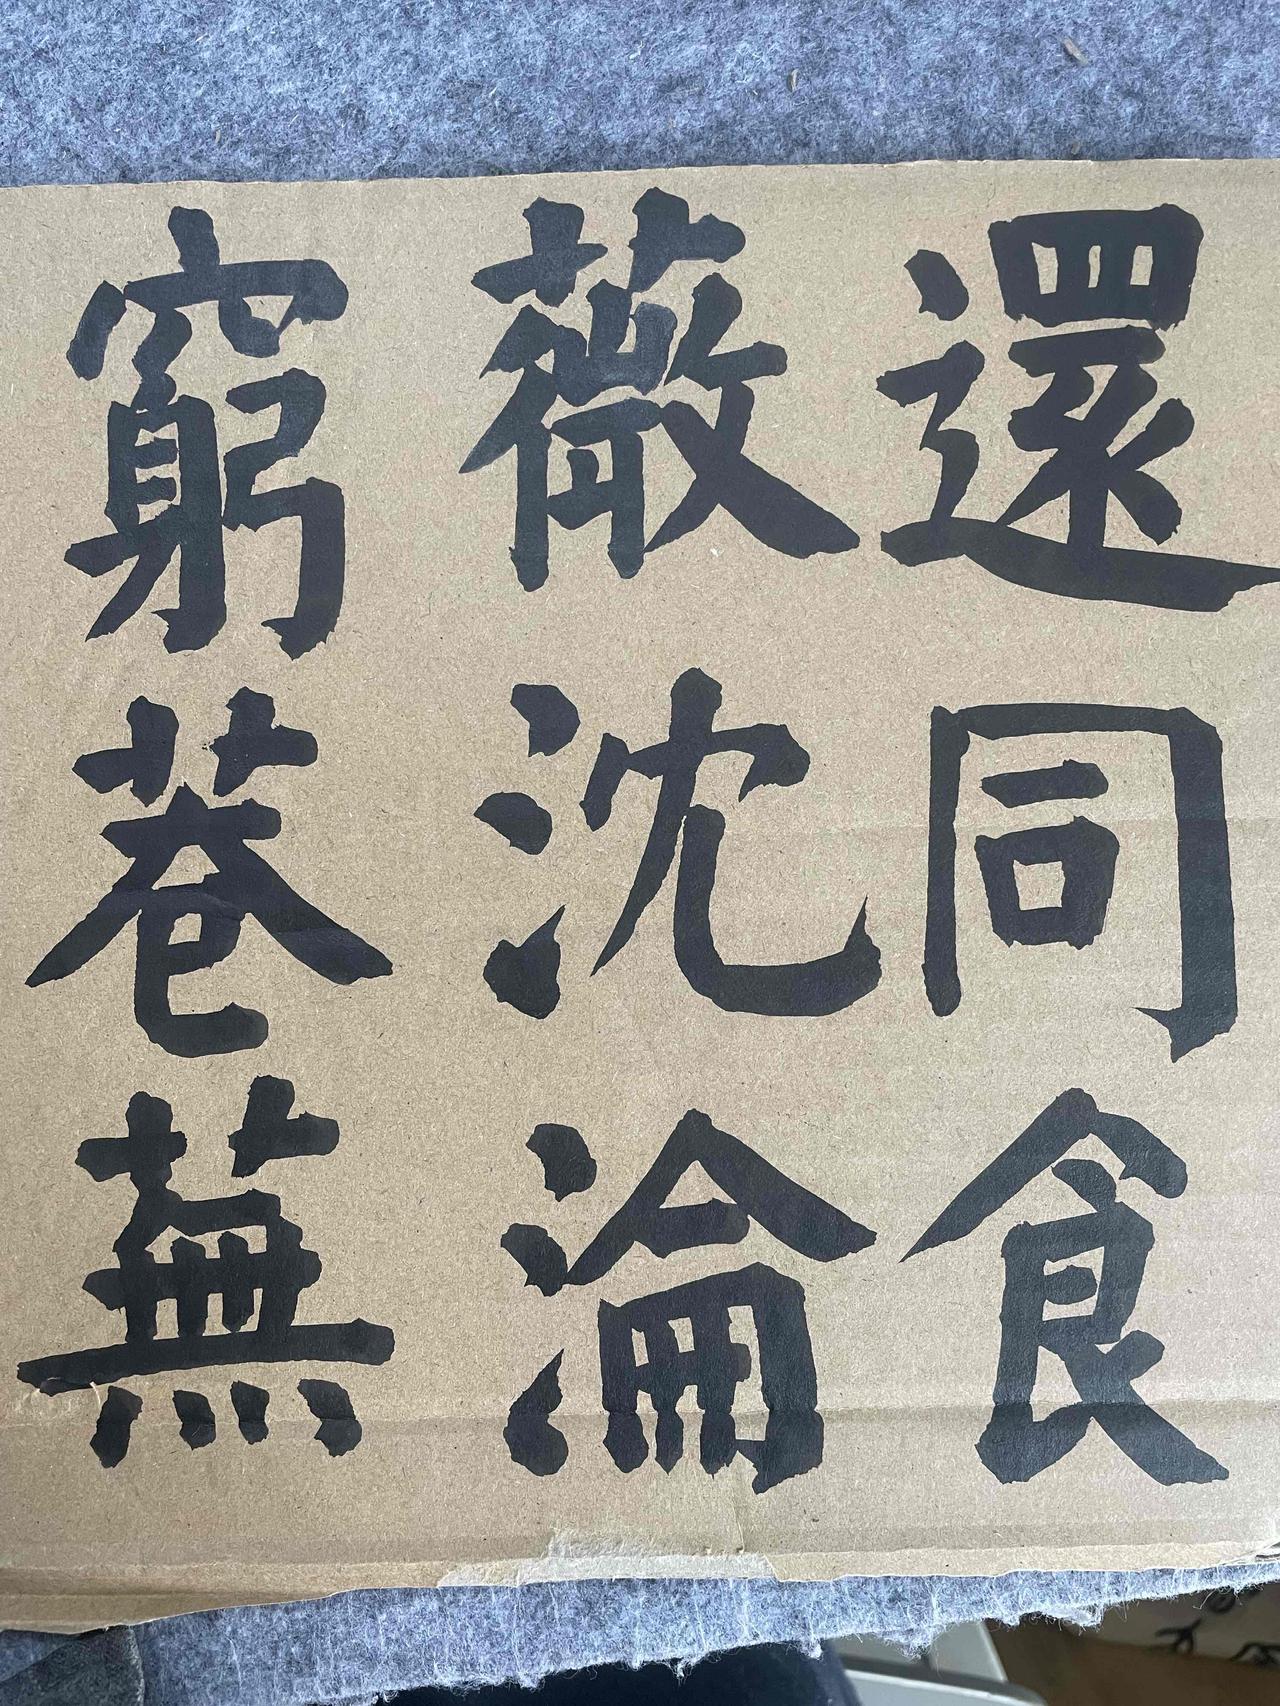 還同食
薇沈淪
窮巷蕪